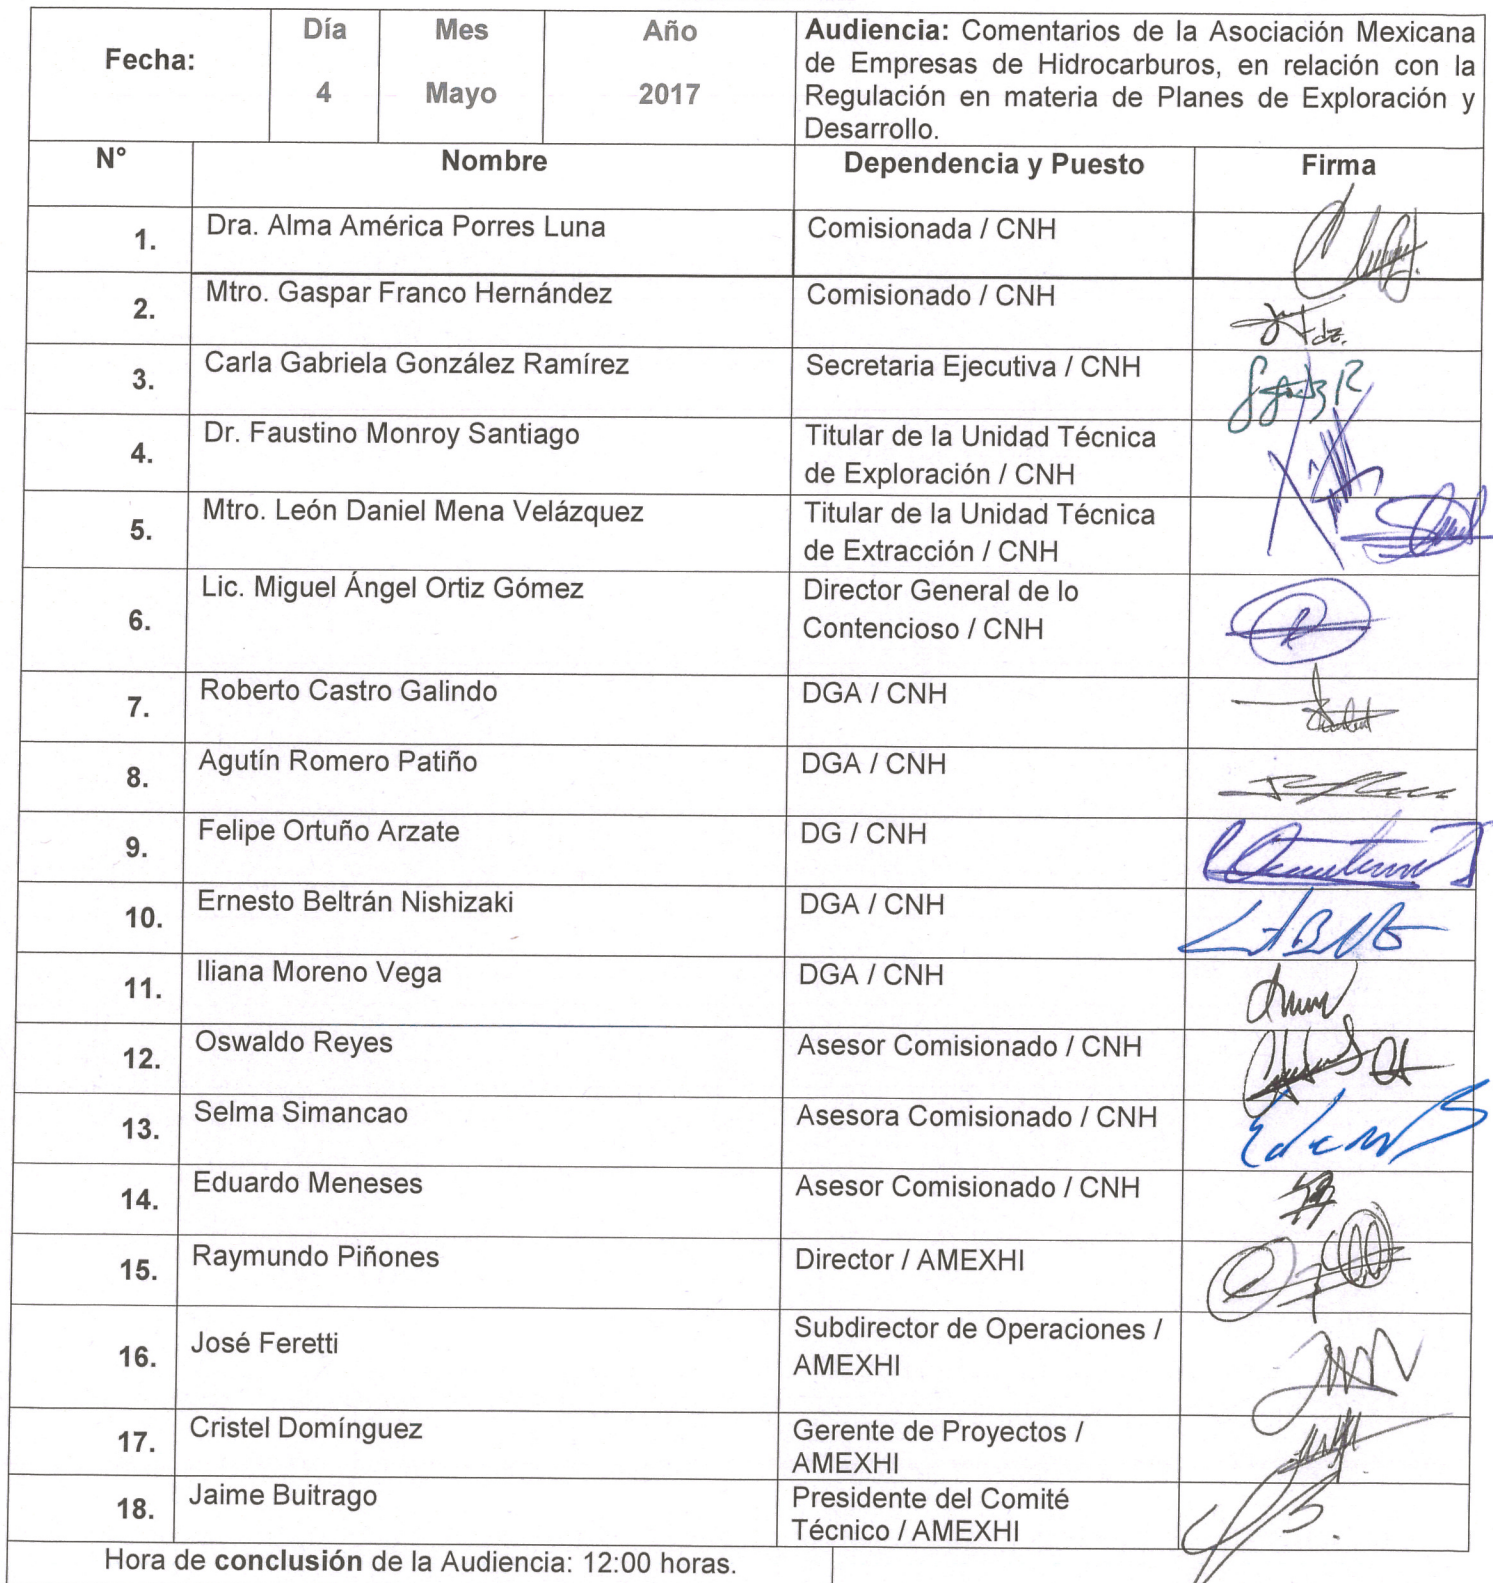 Fecha:
Día Mes Año
4 Mayo 2017
Audiencia: Comentarios de la Asociación Mexicana
de Empresas de Hidrocarburos, en relación con la
Regulación en materia de Planes de Exploración y
Desarrollo.
N° Nombre Dependencia y Puesto Firma
1. Dra. Alma América Porres Luna Comisionada / CNH
2. Mtro. Gaspar Franco Hernández Comisionado / CNH
3. Carla Gabriela González Ramírez Secretaria Ejecutiva / CNH
4. Dr. Faustino Monroy Santiago Titular de la Unidad Técnica
de Exploración / CNH
5. Mtro. León Daniel Mena Velázquez Titular de la Unidad Técnica
de Extracción / CNH
6. Lic. Miguel Ángel Ortiz Gómez Director General de lo
Contencioso / CNH
7. Roberto Castro Galindo DGA / CNH
8. Agutín Romero Patiño DGA / CNH
9. Felipe Ortuño Arzate DG / CNH
10. Ernesto Beltrán Nishizaki DGA / CNH
11. Iliana Moreno Vega DGA / CNH
12. Oswaldo Reyes Asesor Comisionado / CNH
13. Selma Simancao Asesora Comisionado / CNH
14. Eduardo Meneses Asesor Comisionado / CNH
15. Raymundo Piñones Director / AMEXHI
16. José Feretti Subdirector de Operaciones /
AMEXHI
17. Cristel Domínguez Gerente de Proyectos /
AMEXHI
18. Jaime Buitrago Presidente del Comité
Técnico / AMEXHI
Hora de conclusión de la Audiencia: 12:00 horas.